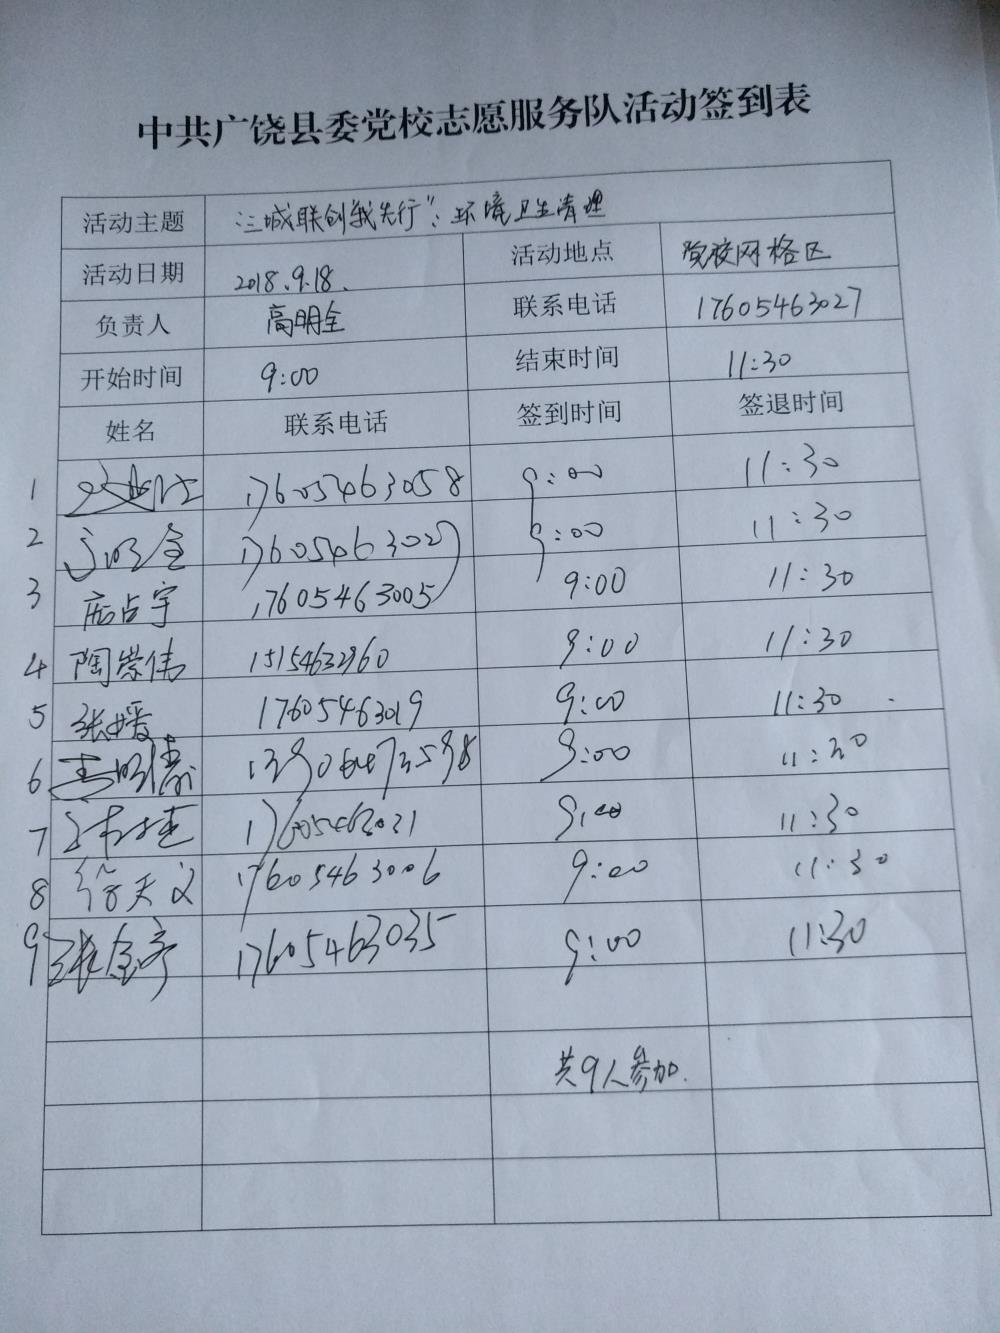 中共广饶县委党校志愿服务队活动签到表
活动主题 "三城联创我先行":环境卫生清理
活动日期 2018.9.18. 活动地点 党校网格区
负责人 高明全 联系电话 17605463027
开始时间 9:00 结束时间 11:30
姓名 联系电话 签到时间 签退时间
1 17605463058 9:00 11:30
2 高明全 17605463027 9:00 11:30
3 庞占宇 17605463005 9:00 11:30
4 陶崇伟 15154632960 9:00 11:30
5 张媛 17605463019 9:00 11:30
6 9:00 11:30
7 9:00 11:30
8 徐天义 17605463006 9:00 11:30
9 17605463035 9:00 11:30
共9人参加.